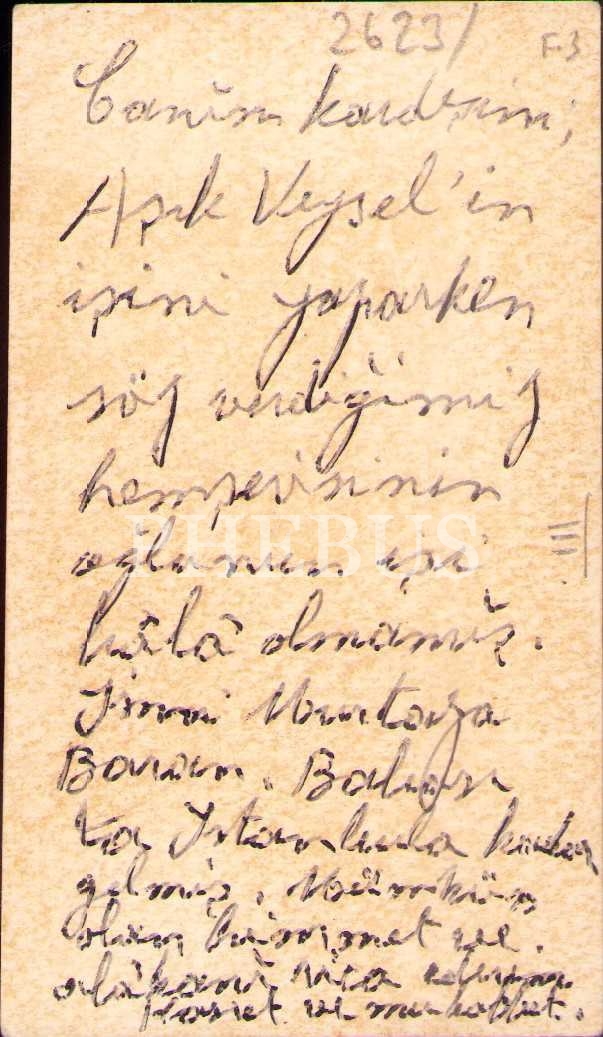 2623/ F.3
Canım kardeşim,
Aşık Veysel'in
işini yaparken
söz verdiğimiz
hemşerisinin
oğlunun işi
hâlâ olmamış.
İsmi Murtaza
Baran. Babası
ta İstanbula kadar
gelmiş. Mümkün
olan himmet ve
alâkanı rica ederim.
Hasret ve muhabbet.
PHEBUS